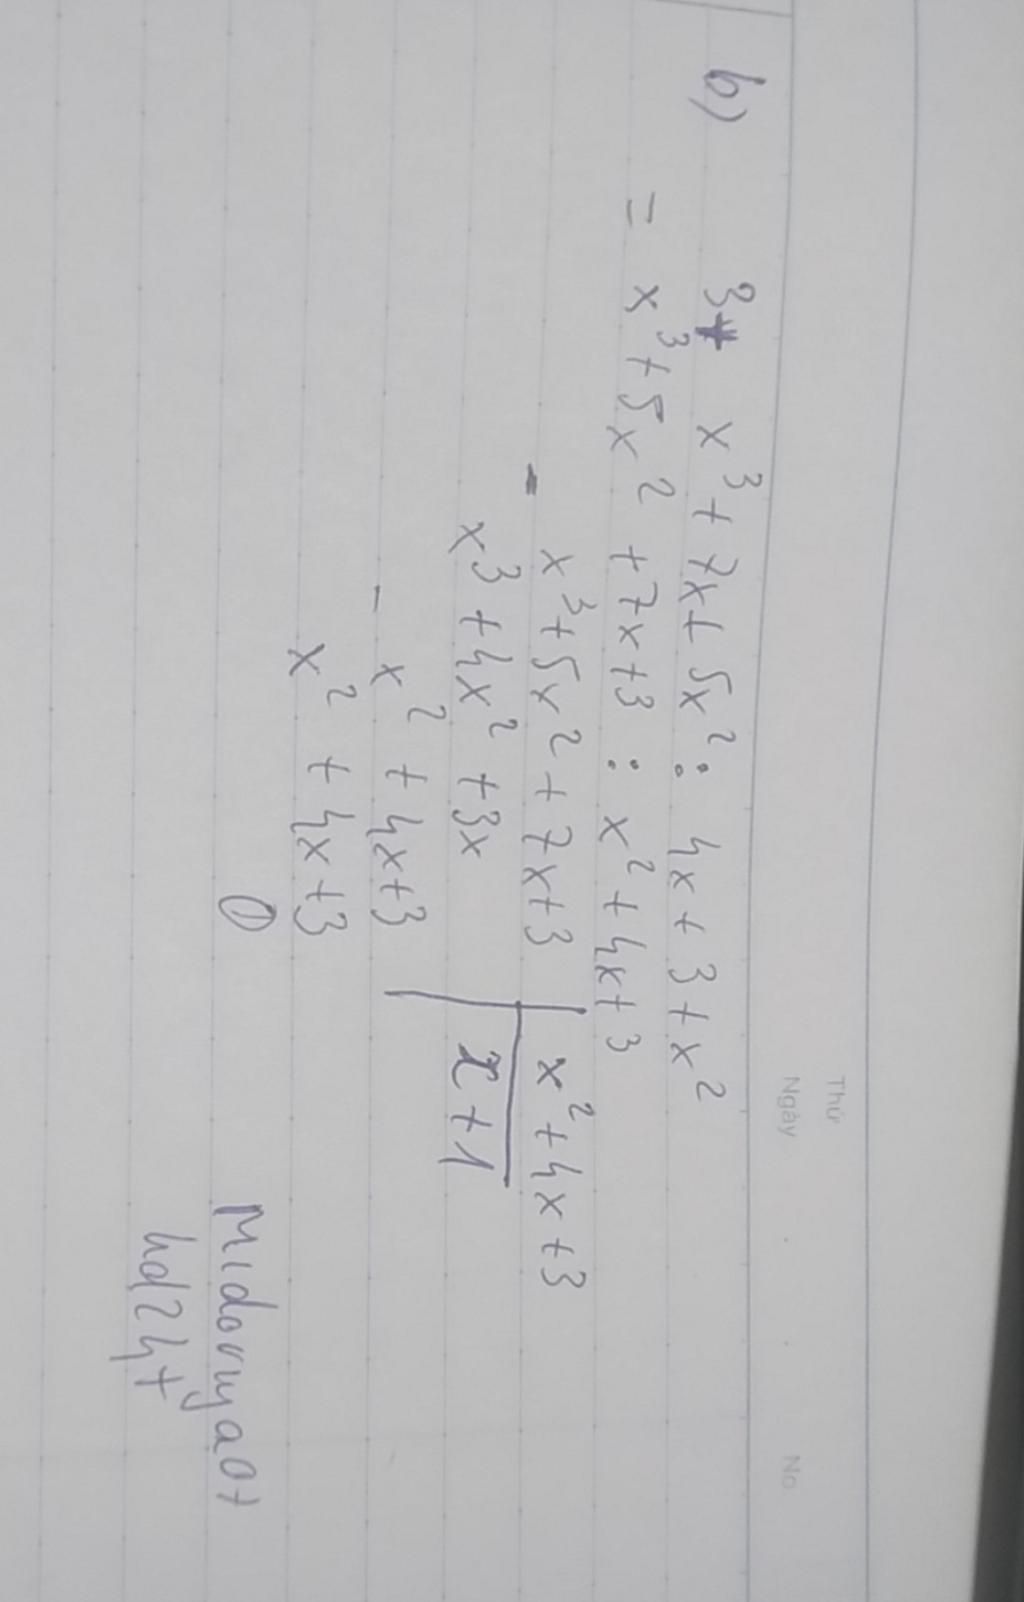 Thứ
Ngày . . No.
b) 3+ x³ + 7x + 5x² : 4x + 3 + x²
= x³ + 5x² + 7x + 3 : x² + 4x + 3
- x³ + 5x² + 7x + 3 | x² + 4x + 3
x³ + 4x² + 3x | x + 1
- x² + 4x + 3
x² + 4x + 3
0